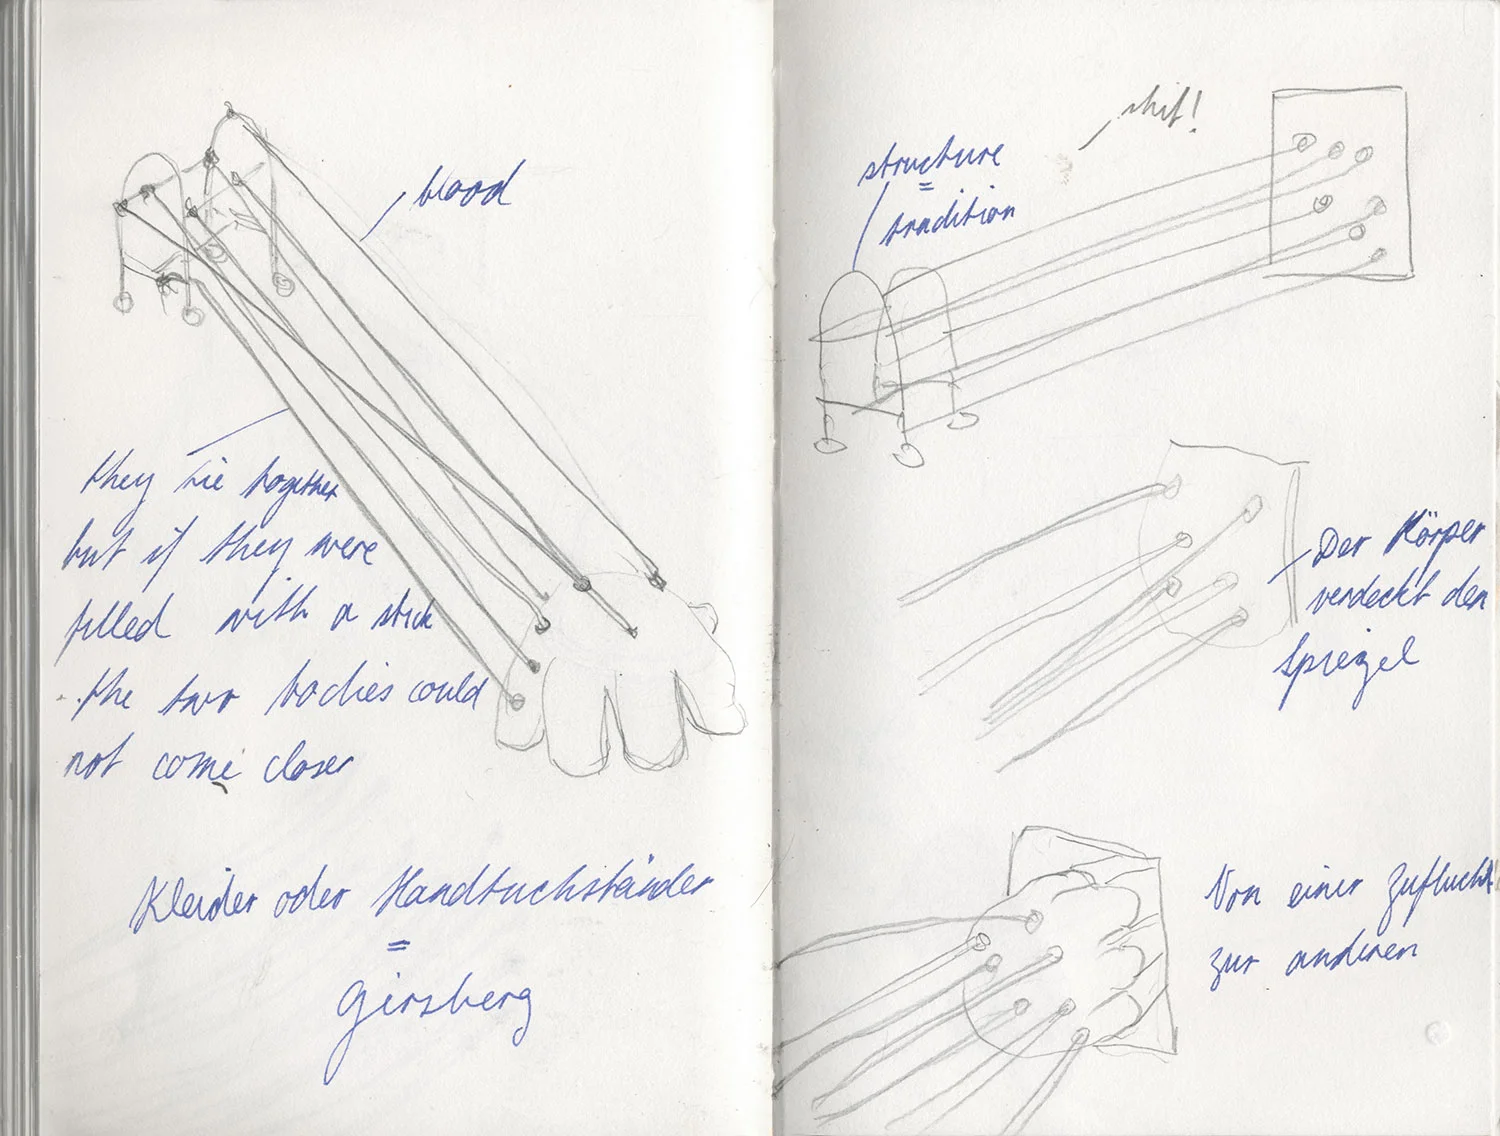 blood
they tie together
but if they were
filled with a stick
the two bodies could
not come closer
Kleider oder Handtuchständer
=
girsberg
structure
=
tradition
shit!
Der Körper
verdeckt den
Spiegel
Von einer Zuflucht
zur anderen